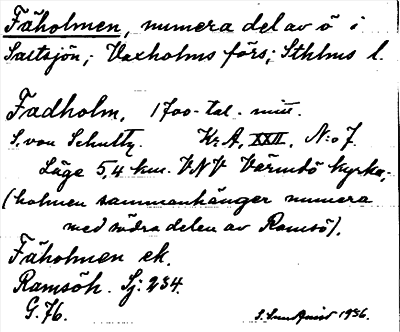 Fäholmen, numera del av ö i
Saltsjön; Vaxholms förs; Sthlms l.
Fadholm, 1700-tal. mitt.
S. von Schultz. Kr. A. XXII. N:o 7.
Läge 5,4 km. VNV Värmdö kyrka;
(holmen sammanhänger numera
med södra delen av Ramsö).
Fäholmen ek.
Ramsöh. Sj: 234.
G. 76.
1936.